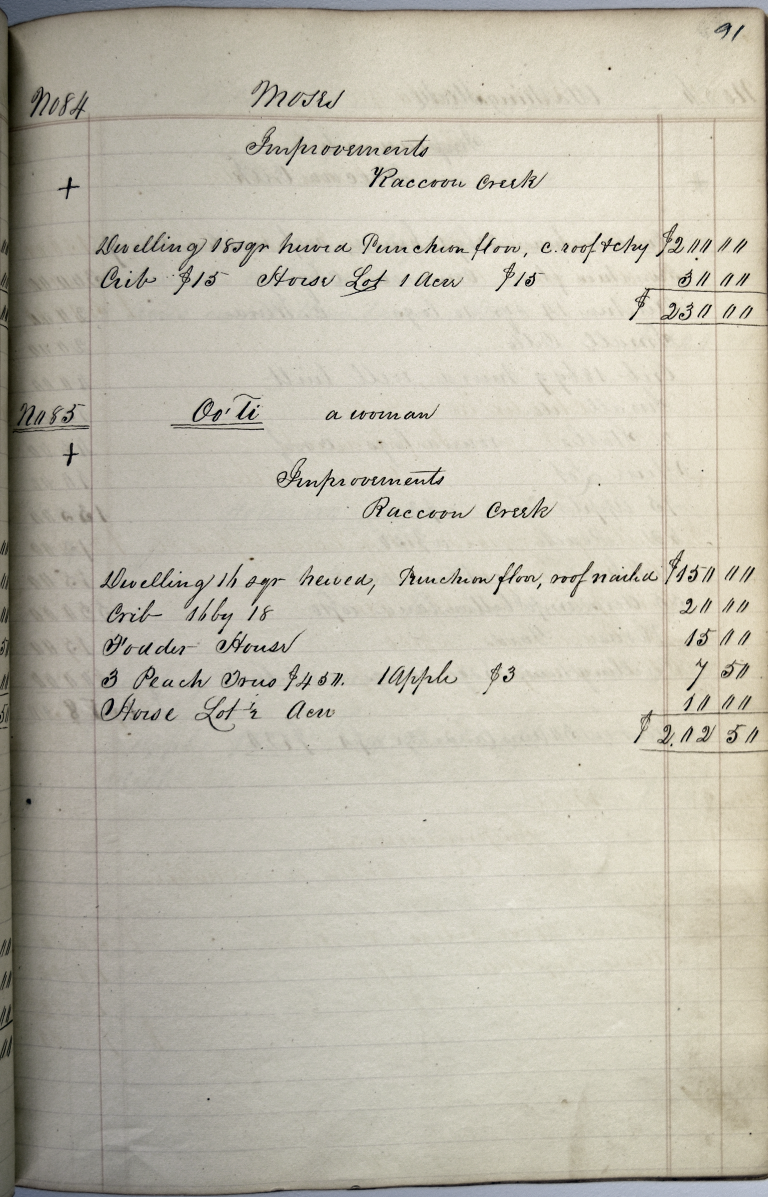 91
No 84 Moses
Improvements
+ Raccoon Creek
Dwelling 18 sqr hewed Puncheon floor, c. roof & chy $200 00
Crib $15 Horse Lot 1 Acre $15 30 00
$ 230 00
No 85 Oo'Ti a woman
+
Improvements
Raccoon Creek
Dwelling 16 sqr hewed, Puncheon floor, roof nailed $150 00
Crib 16 by 18 20 00
Fodder House 15 00
3 Peach Trees $4 50. 1 Apple $3 7 50
Horse Lot ½ Acre 10 00
$ 202 50